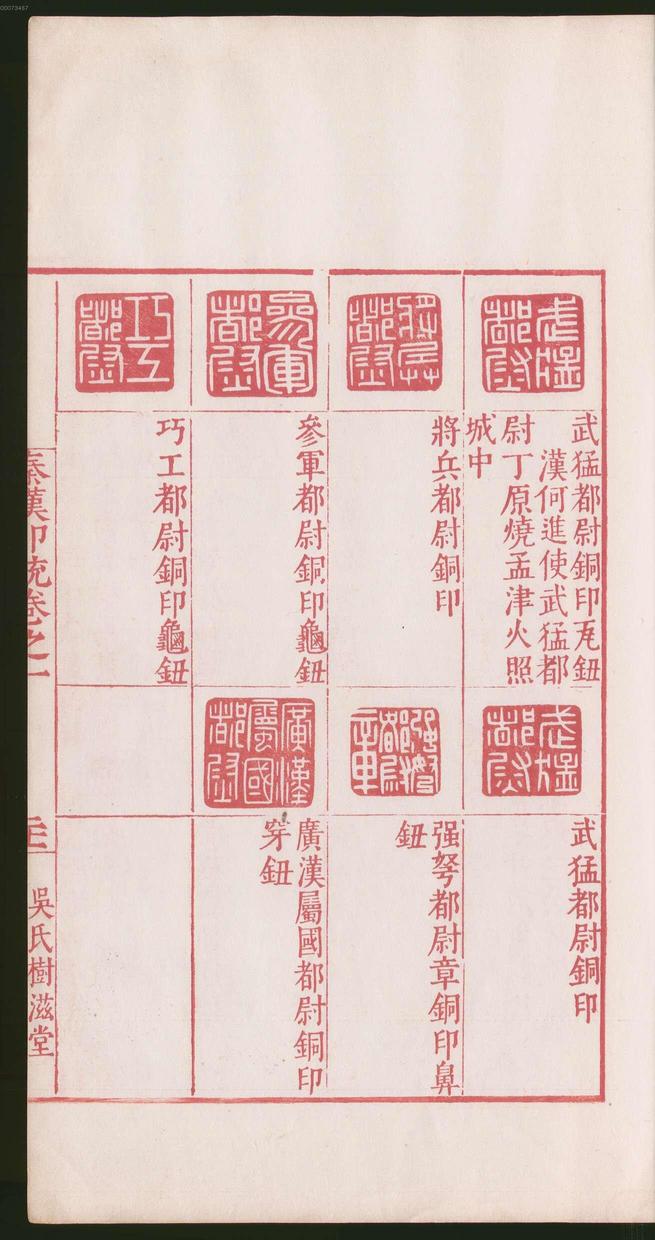 00073467
武猛都尉
武猛都尉銅印瓦鈕
漢何進使武猛都
尉丁原燒孟津火照
城中
將兵都尉
將兵都尉銅印
參軍都尉
參軍都尉銅印龜鈕
巧工都尉
巧工都尉銅印龜鈕
武猛都尉
武猛都尉銅印
强弩都尉章
强弩都尉章銅印鼻
鈕
廣漢屬國都尉
廣漢屬國都尉銅印
穿鈕
秦漢印統卷之一
吳氏樹滋堂